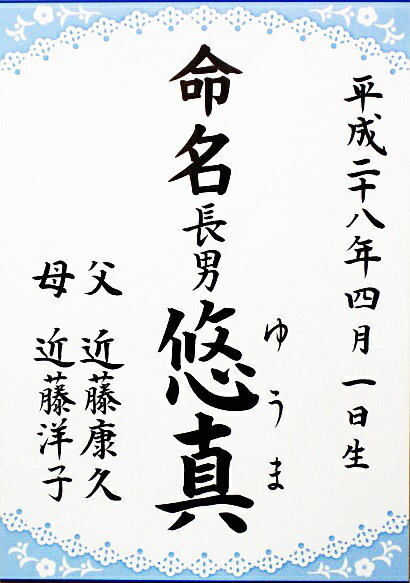 平成二十八年四月一日生
命名長男悠真
ゆうま
父 近藤康久
母 近藤洋子